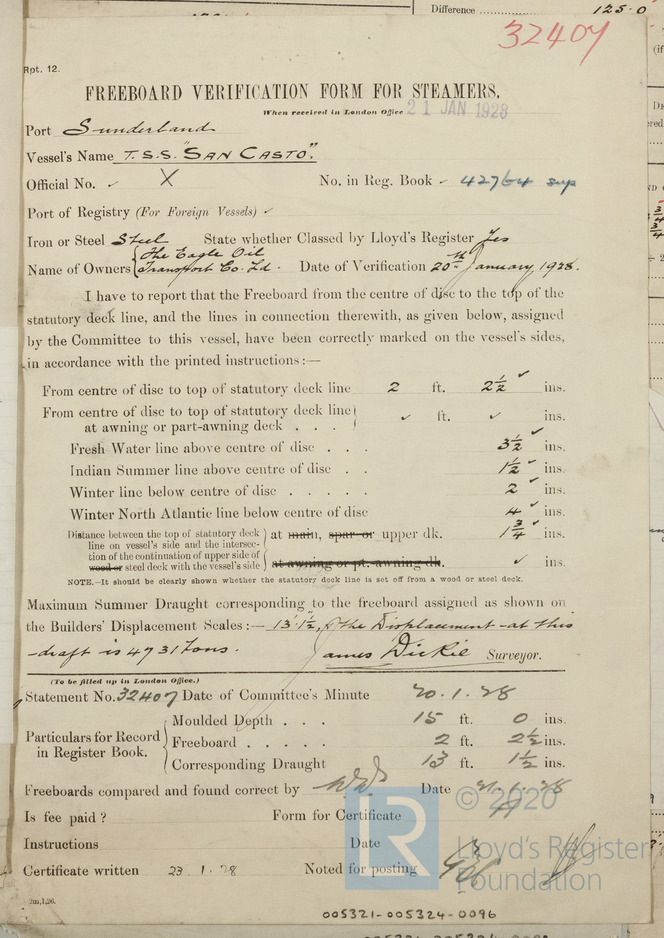 Difference .......... 125.0
32407
Rpt. 12.
FREEBOARD VERIFICATION FORM FOR STEAMERS.
When received in London Office 21 JAN 1928
Port Sunderland
Vessel's Name T.S.S. "SAN CASTO".
Official No. ✓ X No. in Reg. Book ✓ 42764 sup
Port of Registry (For Foreign Vessels) ✓
Iron or Steel Steel State whether Classed by Lloyd's Register Yes
Name of Owners { The Eagle Oil
Transport Co. Ld. Date of Verification 20th January 1928.
I have to report that the Freeboard from the centre of disc to the top of the
statutory deck line, and the lines in connection therewith, as given below, assigned
by the Committee to this vessel, have been correctly marked on the vessel's sides,
in accordance with the printed instructions :—
From centre of disc to top of statutory deck line 2 ft. 2½ ✓ ins.
From centre of disc to top of statutory deck line
at awning or part-awning deck . . . } ✓ ft. ✓ ins.
Fresh Water line above centre of disc . . . 3½ ✓ ins.
Indian Summer line above centre of disc . . 1½ ✓ ins.
Winter line below centre of disc . . . . . 2 ✓ ins.
Winter North Atlantic line below centre of disc 4 ✓ ins.
Distance between the top of statutory deck
line on vessel's side and the intersec-
tion of the continuation of upper side of
wood or steel deck with the vessel's side } at main, spar or upper dk. 1¾ ✓ ins.
at awning or pt. awning dk. ✓ ins.
NOTE.—It should be clearly shown whether the statutory deck line is set off from a wood or steel deck.
Maximum Summer Draught corresponding to the freeboard assigned as shown on
the Builders' Displacement Scales :— 13'.1½", & the Displacement at this
draft is 4731 tons. James Dickie Surveyor.
(To be filled up in London Office.)
Statement No. 32407 Date of Committee's Minute 20.1.28
Particulars for Record
in Register Book. { Moulded Depth . . . 15 ft. 0 ins.
Freeboard . . . . . 2 ft. 2½ ins.
Corresponding Draught 13 ft. 1½ ins.
Freeboards compared and found correct by Date 21.1.28
Is fee paid ? Form for Certificate
Instructions Date
Certificate written 23.1.28 Noted for posting
2m,1,26.
© 2020
LR
Lloyd's Register
Foundation
005321-005324-0096